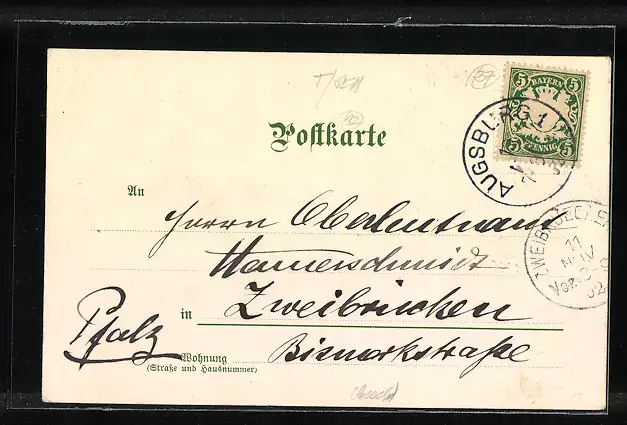 27
5 BAYERN 5
5 PFENNIG 5
AUGSBURG 1
Postkarte
An
Herrn Oberleutnant
Hammerschmidt
ZWEIBRUECKEN
11
NOV
Vor.
02
in Zweibrücken
Pfalz
Wohnung
(Straße und Hausnummer)
Bismarkstraße